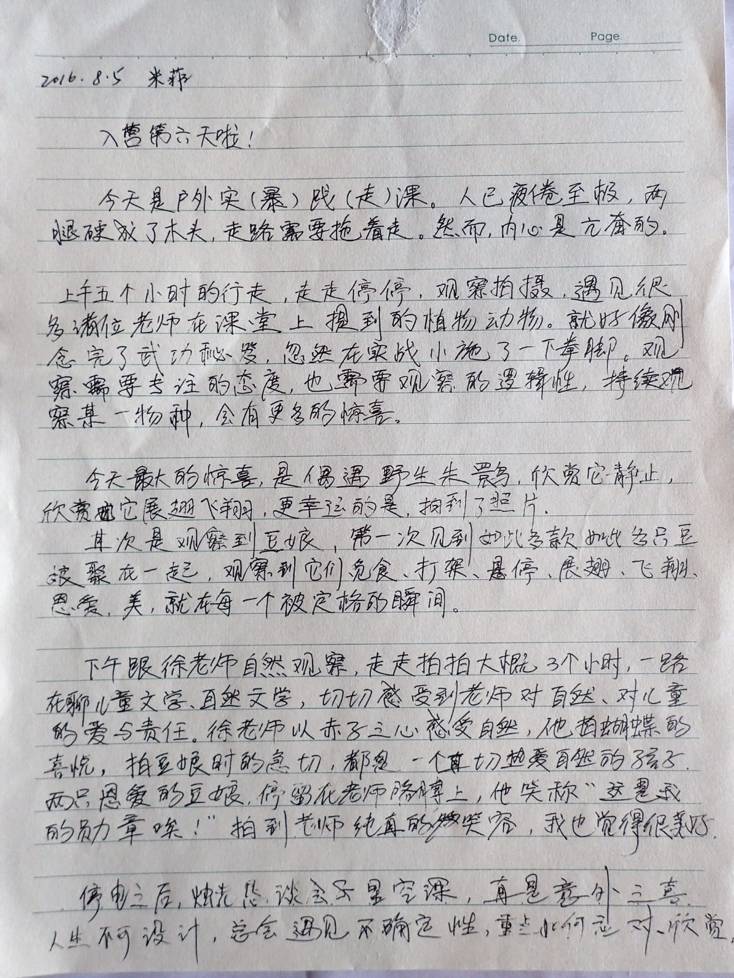 Date. Page
2016.8.5 米菲
入营第六天啦！
今天是户外实(暴)践(走)课。人已疲倦至极，两
腿硬成了木头，走路需要拖着走。然而，内心是亢奋的。
上午五个小时的行走，走走停停，观察拍摄，遇见很
多诸位老师在课堂上提到的植物动物。就好像刚
念完了武功秘笈，忽然在实战小施了一下拳脚。观
察需要专注的态度，也需要观察的逻辑性，持续观
察某一物种，会有更多的惊喜。
今天最大的惊喜，是偶遇野生朱鹮，欣赏它静止，
欣赏它展翅飞翔，更幸运的是，拍到了照片.
其次是观察到豆娘，第一次见到如此多款如此多只豆
娘聚在一起，观察到它们觅食、打架、悬停、展翅、飞翔、
恩爱，美，就在每一个被定格的瞬间。
下午跟徐老师自然观察，走走拍拍大概3个小时，一路
在聊儿童文学、自然文学，切切感受到老师对自然、对儿童
的爱与责任。徐老师以赤子之心感受自然，他拍蝴蝶的
喜悦，拍豆娘时的急切，都是一个真切热爱自然的孩子.
两只恩爱的豆娘，停留在老师胳膊上，他笑称“这是我
的勋章唉！”拍到老师纯真的笑容，我也觉得很美好.
停电之后，烛光 谈会 星空课，真是意外之喜.
人生不可设计，总会遇见不确定性，重点如何应对、欣赏，